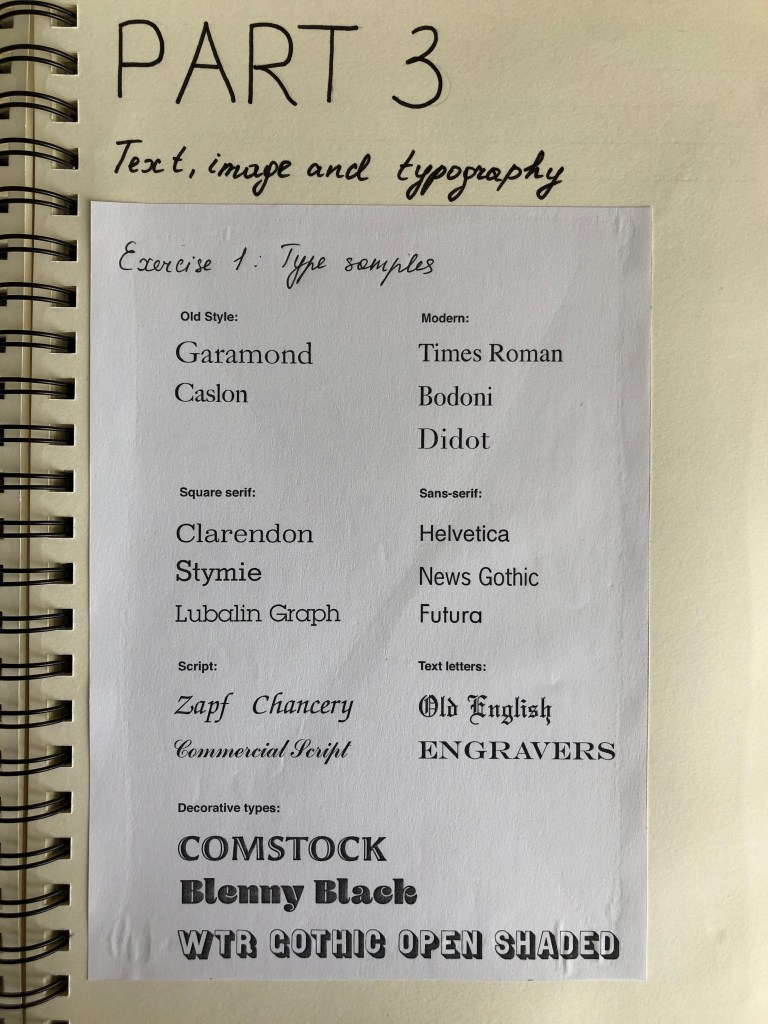 PART 3
Text, image and typography
Exercise 1: Type samples
Old Style:
Garamond
Caslon
Modern:
Times Roman
Bodoni
Didot
Square serif:
Clarendon
Stymie
Lubalin Graph
Sans-serif:
Helvetica
News Gothic
Futura
Script:
Zapf Chancery
Commercial Script
Text letters:
Old English
ENGRAVERS
Decorative types:
COMSTOCK
Blenny Black
WTR GOTHIC OPEN SHADED